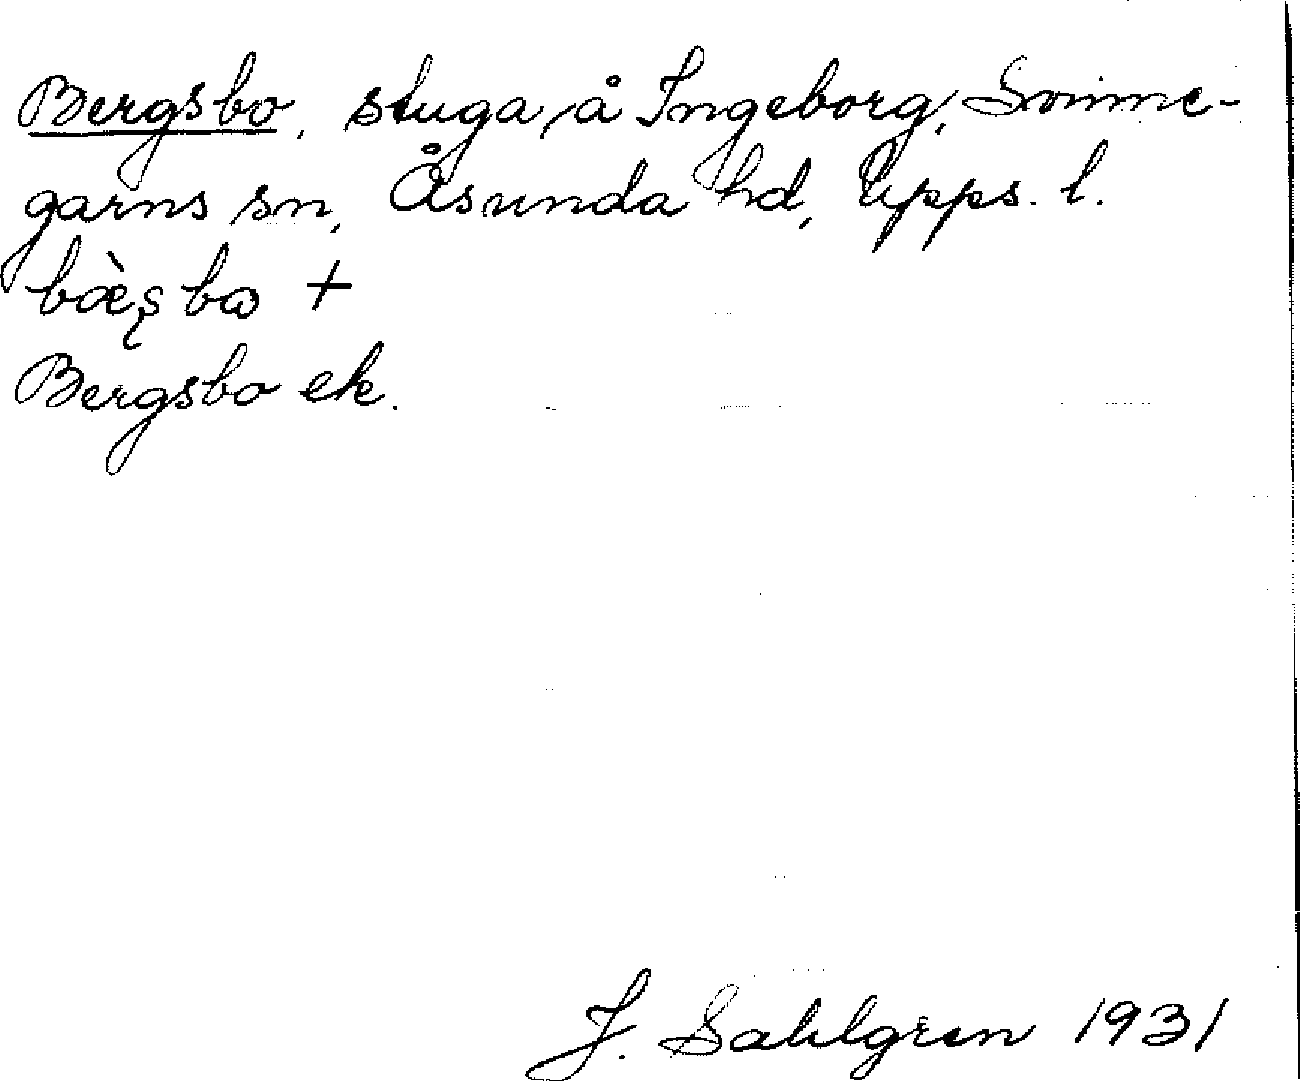 Bergsbo, stuga å Ingeborg, Svinne-
garns sn, Åsunda hd, Upps. l.
bæ̀ʂbꞷ +
Bergsbo ek.
J. Sahlgren 1931